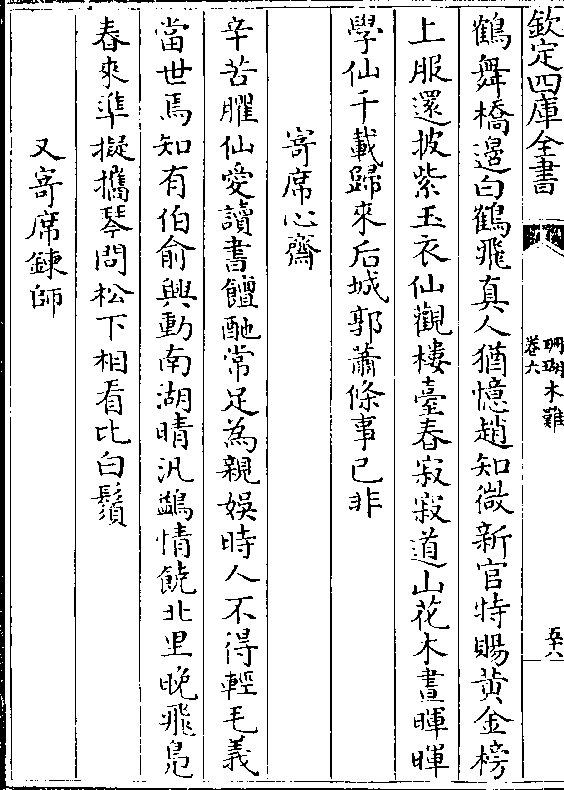 欽定四庫全書
珊瑚木難
卷六
五十八
鶴舞橋邉白鶴飛真人猶憶趙知微新官特賜黄金榜
上服還披紫玉衣仙觀樓臺春寂寂道山花木晝暉暉
學仙千載歸來后城郭蕭條事已非
寄席心齋
辛苦臞仙愛讀書饘酏常足為親娛時人不得輕毛義
當世焉知有伯俞興動南湖晴汎鷁情饒北里晚飛鳬
春來準擬攜琴問松下相看比白鬚
又寄席鍊師